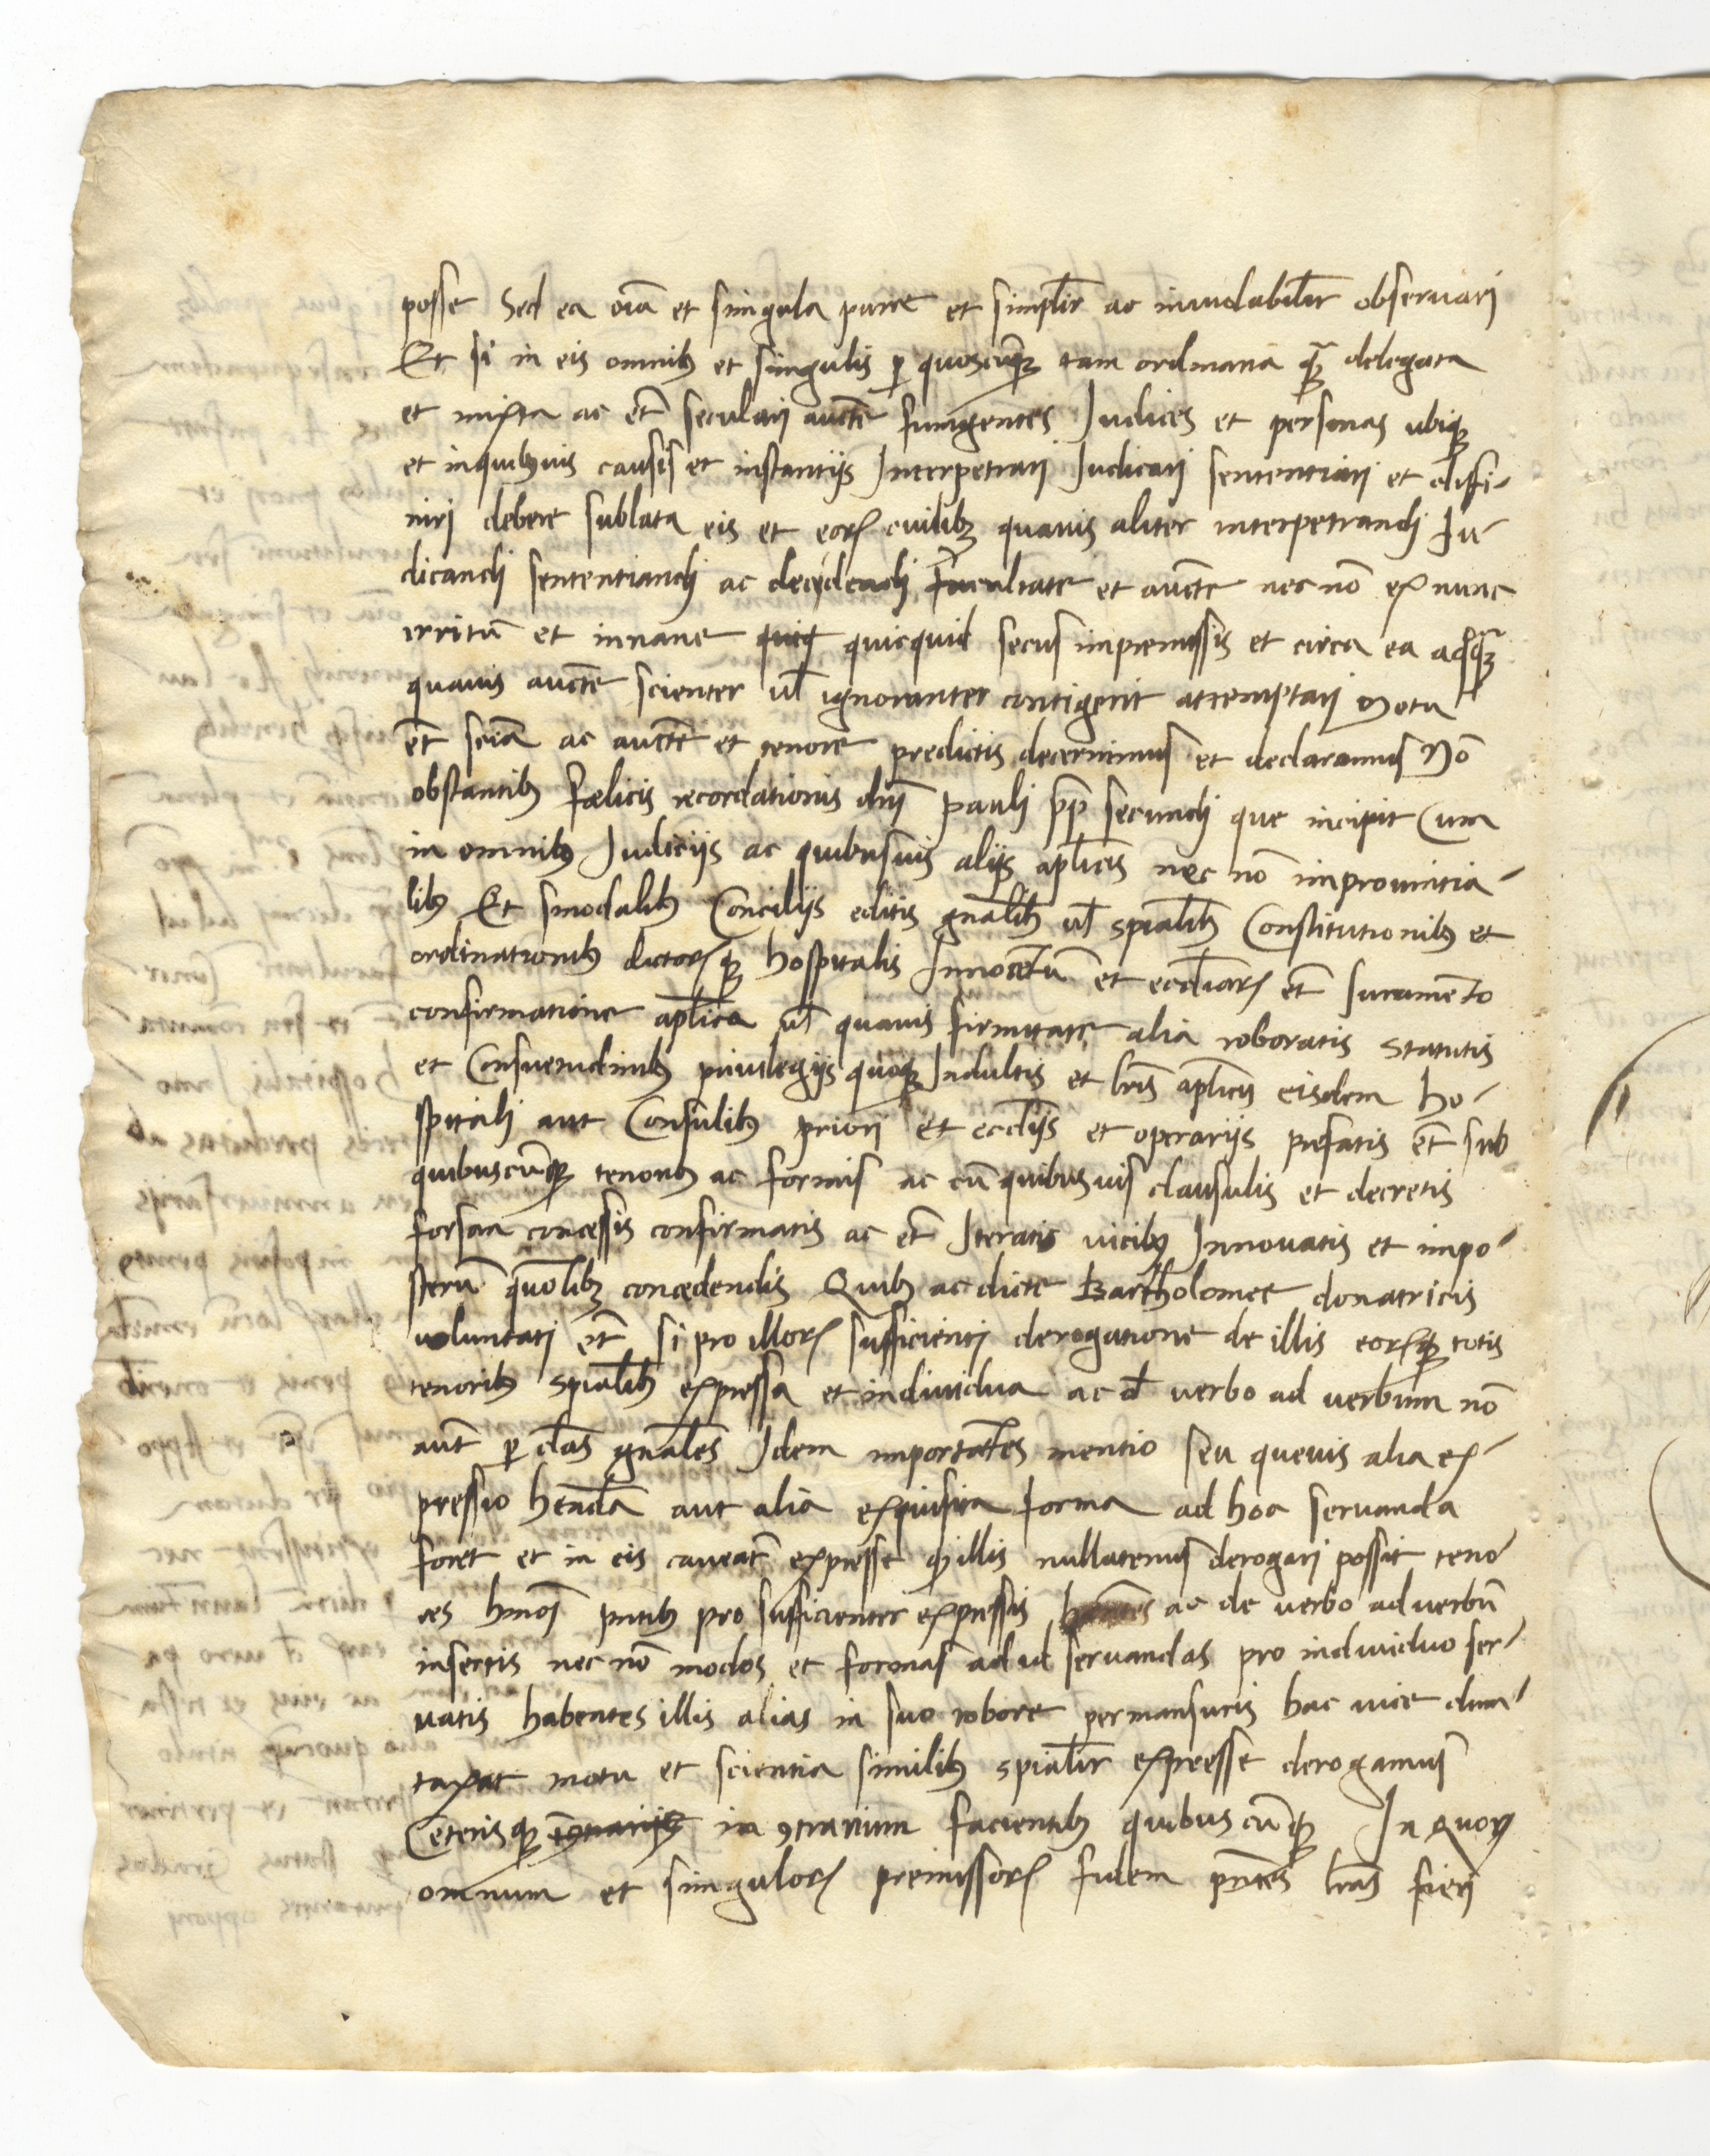 posse Sed ea oīa et singula pure et simplr̄ ac inuiolabilr̄ obseruari
Et si in eis omnibꝫ et singulis ꝑ quoscūqꝫ tam ordinaria qꝫ delegata
et mixta ac et̄ seculari aucte fungentes Judices et personas ubiqꝫ
et inquibꝫuis causis et instantijs Interpetrari Judicari sententiari et diffi-
niri debere sublata eis et eorꝝ cuilibꝫ quauis aliter interpetrandi Ju-
dicandi sententiandi ac decidendi facultate et aucte nec nō ex nunc
irritū et innane quicquid secus inpremissis et circa ea aqꝫ
quauis aucte scienter ul̄ ignoranter cōtigerit attemptari Motu
et̄ sciā ac aucte et tenore predictis decernimus et declaramus Nō
obstantibꝫ fœlicis recordationis dn̄i Pauli pp̄ secundi que incipit Cum
in omnibꝫ Judicijs ac quibusuis alijs aplicis nec nō inprouintia-
libꝫ Et sinodalibꝫ Concilijs editis gnalibꝫ ul̄ spialibꝫ Constitutionibꝫ et
ordinationibꝫ dictorꝝqꝫ hospitalis Innocētū et ecclīarꝝ et̄ Juramēto
confirmatione aplica ul̄ quauis firmitate alia roboratis statutis
et Consuetudinibꝫ priuilegijs quoqꝫ Indultis et lrīs aplicis eisdem ho-
spitali aut Consulibꝫ priori et ecclijs et operarijs prefatis et̄ sub
quibuscūqꝫ tenoribꝫ ac formis ac cū quibusuis clausulis et decretis
forsan concessis confirmatis ac et̄ Iteratis uicibꝫ Innouatis et impo-
sterū quōlibꝫ concedendis Quibꝫ ac dicte Bartholomee donatricis
uoluntati et̄ si pro illorꝝ sufficienti derogatione de illis eorꝝqꝫ totis
tenoribꝫ spialibꝫ expressa et indiuidua ac d̄ uerbo ad uerbum nō
aūt ꝑ clās gnales Idem importātes mentio seu queuis alia ex-
pressio hēnda aut alia exquisita forma ad hoc seruanda
foret et in eis caueat̄ expresse qꝫ illis nullatenus derogari possit teno
res hmōi pn̄tibꝫ pro sufficienter expressis ac de uerbo ad uerbū
insertis nec nō modos et formas ad id seruandas pro indiuiduo ser-
uatis habentes illis alias in suo robore permansuris hac uice dum-
taxat motu et scientia similibꝫ spialr̄ expresse derogamus
Ceterisqꝫ in ꝯtrarium facientibꝫ quibuscūqꝫ In quorꝝ
omnium et singulorꝝ premissorꝝ fidem pn̄tes lrās fieri